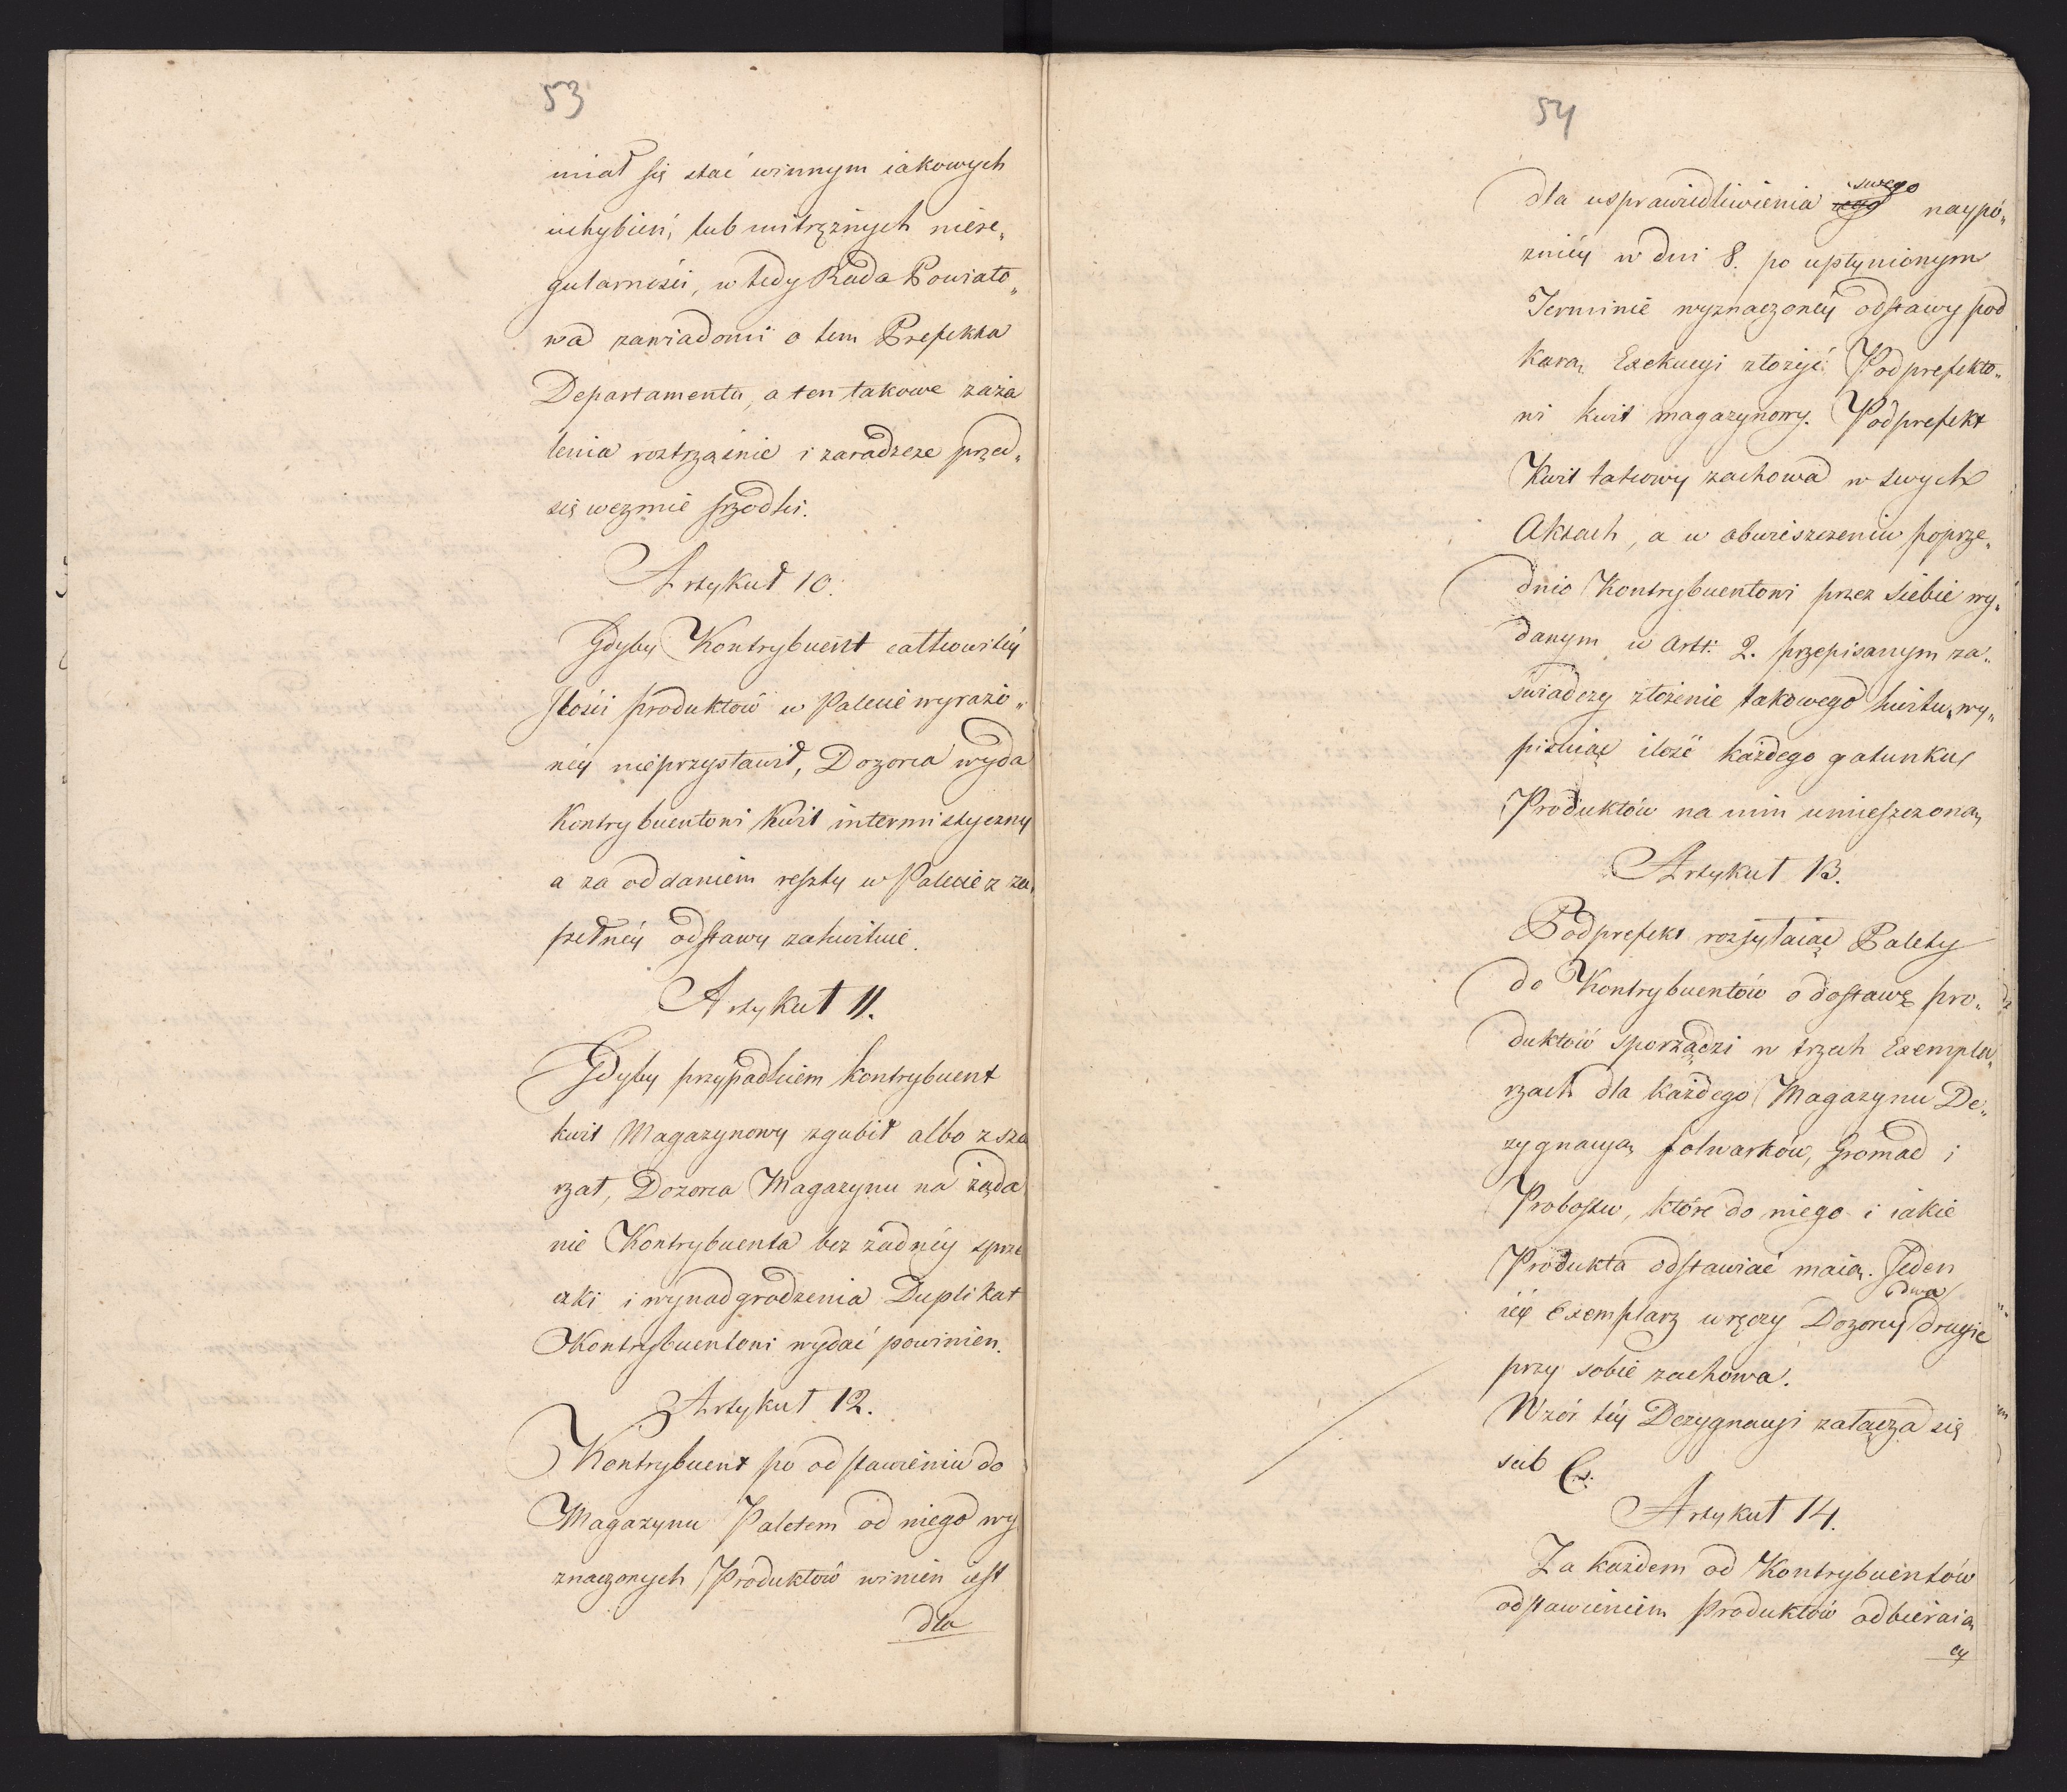 53
miał się stać winnym iakowych
uchybień, lub mitrężnych niere„
gularności, w tedy Rada Powiato„
wa zawiadomi o tem Prefekta
Departamentu, a ten takowe zaża
lenia roztrząśnie i zaradzcze przed„
się wezmie srzodki.
Artykuł 10.
Gdyby Kontrybuent całkowitéy
Ilości produktów w Palecie wyrażo„
néy nieprzystawił, Dozorca wyda
Kontrybuentowi Kwit intermistyczny
a za oddaniem reszty w Palecie z zu„
pełnéy odstawy zakwituie.
Artykuł 11.
Gdyby przypadkiem kontrybuent
kwit Magazynowy zgubił albo zsza
rzał, Dozorca Magazynu na żąda
nie Kontrybuenta bez żadnéy sprze
czki i wynadgrodzenia Duplikat
Kontrybuentowi wydać powinien.
Artykuł 12.
Kontrybuent po odstawieniu do
Magazynu Paletem od niego wy
znaczonych Produktów winien iest
dla
54
dla usprawiedliwienia swego naypó„
zniéy w dni 8. po upłynionym
Terminie wyznaczonéy odstawy pod
karą Exekucyi złożyć Podprefekto„
wi kwit magazynowy. Podprefekt
Kwit takowy zachowa w swych
Aktach, a w obwieszczeniu poprze„
dnio Kontrybuentowi przez siebie wy„
danym w Artt: 2. przepisanym za„
świadczy złożenie takowego kwitu, wy„
pisuiąc ilość każdego gatunku
Produktów na nim umieszczoną
Artykuł 13.
Podprefekt rozsyłaiąc Palety
do Kontrybuentów o dostawę pro„
duktów sporządzi w trzech Exempla„
rzach dla każdego Magazynu De„
zygnacyą folwarków, Gromad i
Probostw, które do niego i iakie
Produkta odstawiać maią. Jeden
dwa
iéy Exemplarz wręczy Dozorcy drugie
przy sobie zachowa.
Wzór téy Dezygnacyi załącza się
sub C.
Artykuł 14.
Za każdem od Kontrybuentów
odstawieniem Produktów odbieraią
cy